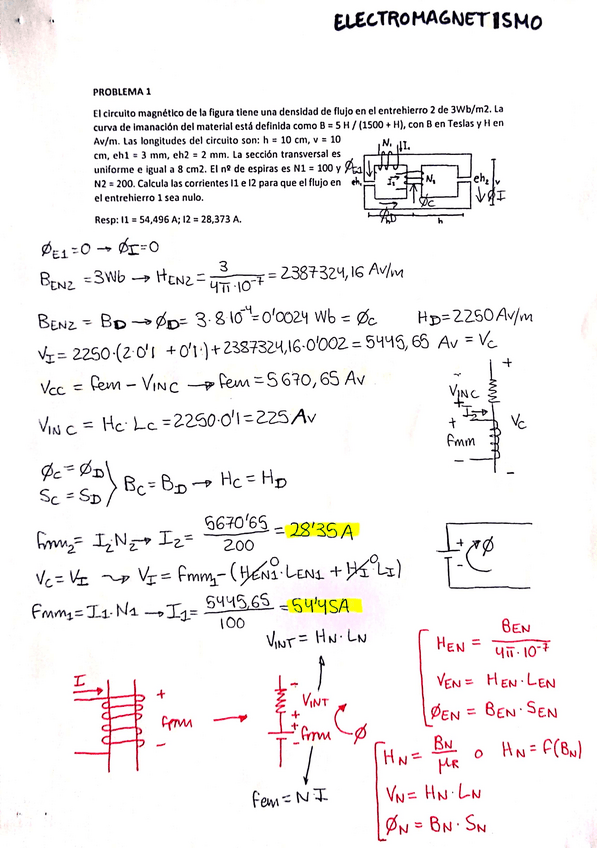 ELECTROMAGNETISMO
PROBLEMA 1
El circuito magnético de la figura tiene una densidad de flujo en el entrehierro 2 de 3Wb/m2. La
curva de imanación del material está definida como B = 5 H / (1500 + H), con B en Teslas y H en
Av/m. Las longitudes del circuito son: h = 10 cm, v = 10
cm, eh1 = 3 mm, eh2 = 2 mm. La sección transversal es
uniforme e igual a 8 cm2. El nº de espiras es N1 = 100 y
N2 = 200. Calcula las corrientes I1 e I2 para que el flujo en
el entrehierro 1 sea nulo.
Resp: I1 = 54,496 A; I2 = 28,373 A.
N1 I1
eh2 v
ØC ØI
ØD h
ØE1=0 → ØI=0
BEN2 = 3Wb → HEN2 = 3 / 4π·10⁻⁷ = 2387324,16 Av/m
BEN2 = BD → ØD = 3·8·10⁻⁴ = 0'0024 Wb = ØC HD = 2250 Av/m
VI = 2250·(2·0'1 + 0'1·) + 2387324,16·0'002 = 5445,65 Av = VC
VCC = fem - VINC → fem = 5670,65 Av
VINC = HC·LC = 2250·0'1 = 225 Av
+
VINC
+
I2
+
fmm
-
VC
-
ØC = ØD
SC = SD } BC = BD → HC = HD
fmm2 = I2·N2 → I2 = 5670'65 / 200 = 28'35 A
VC = VI → VI = fmm1 - (HEN1 0·LEN1 + HI 0·LI)
+ Ø
-
fmm1 = I1·N1 → I1 = 5445,65 / 100 = 54'45A
VINT = HN·LN
I
+
fmm
-
-
VINT
+
+
fmm
-
Ø
fem = N I
HEN = BEN / 4π·10⁻⁷
VEN = HEN·LEN
ØEN = BEN·SEN
HN = BN / μR o HN = f(BN)
VN = HN·LN
ØN = BN·SN